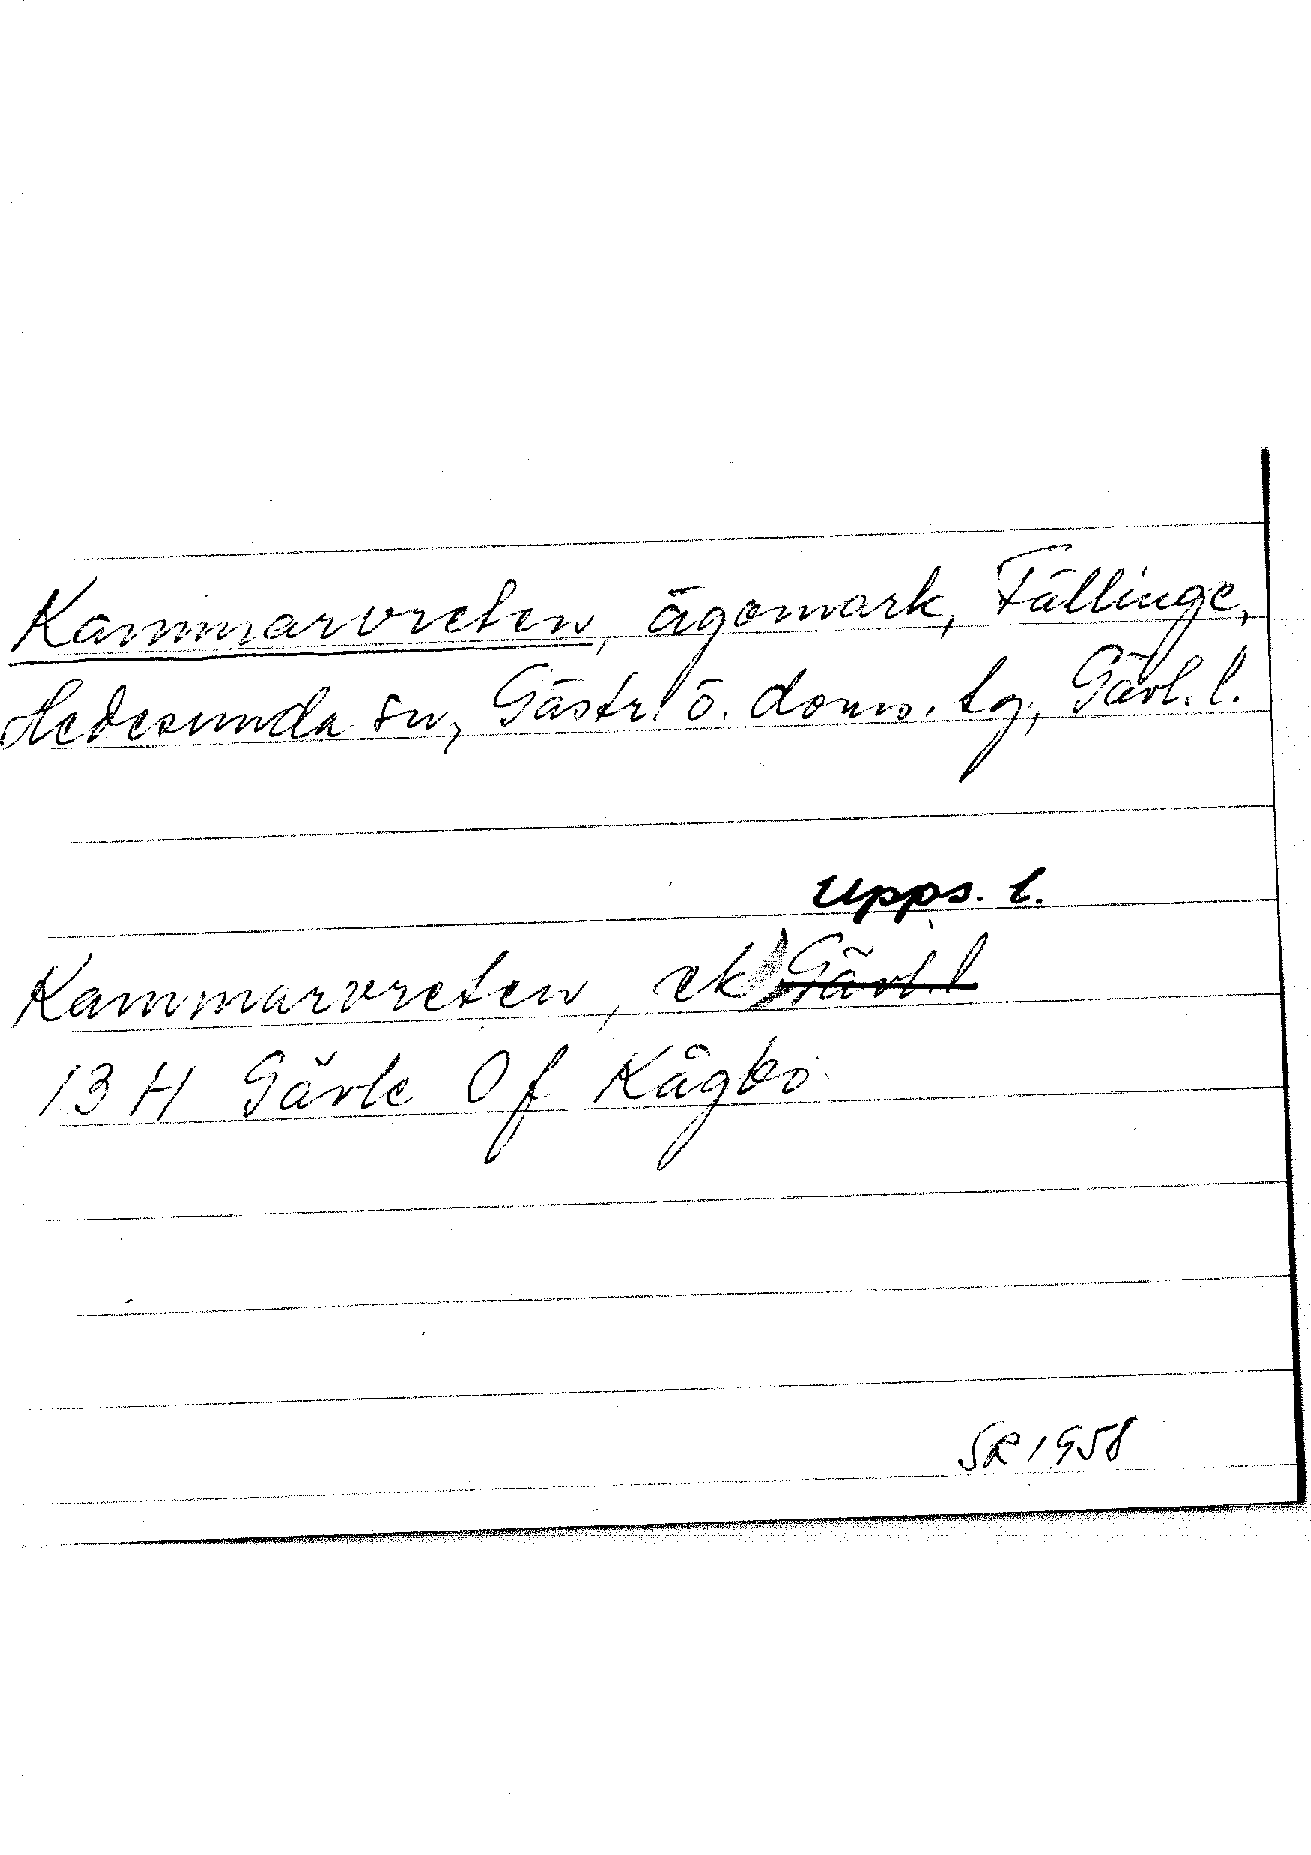 Kammarvreten, ägomark, Fällinge,
Hedesunda sn, Gästr. ö. doms. tg, Gävl. l.
Upps. l.
Kammarvreten, ek, Gävl. l
13 H Gävle 0 f Kågbo
SR 1958